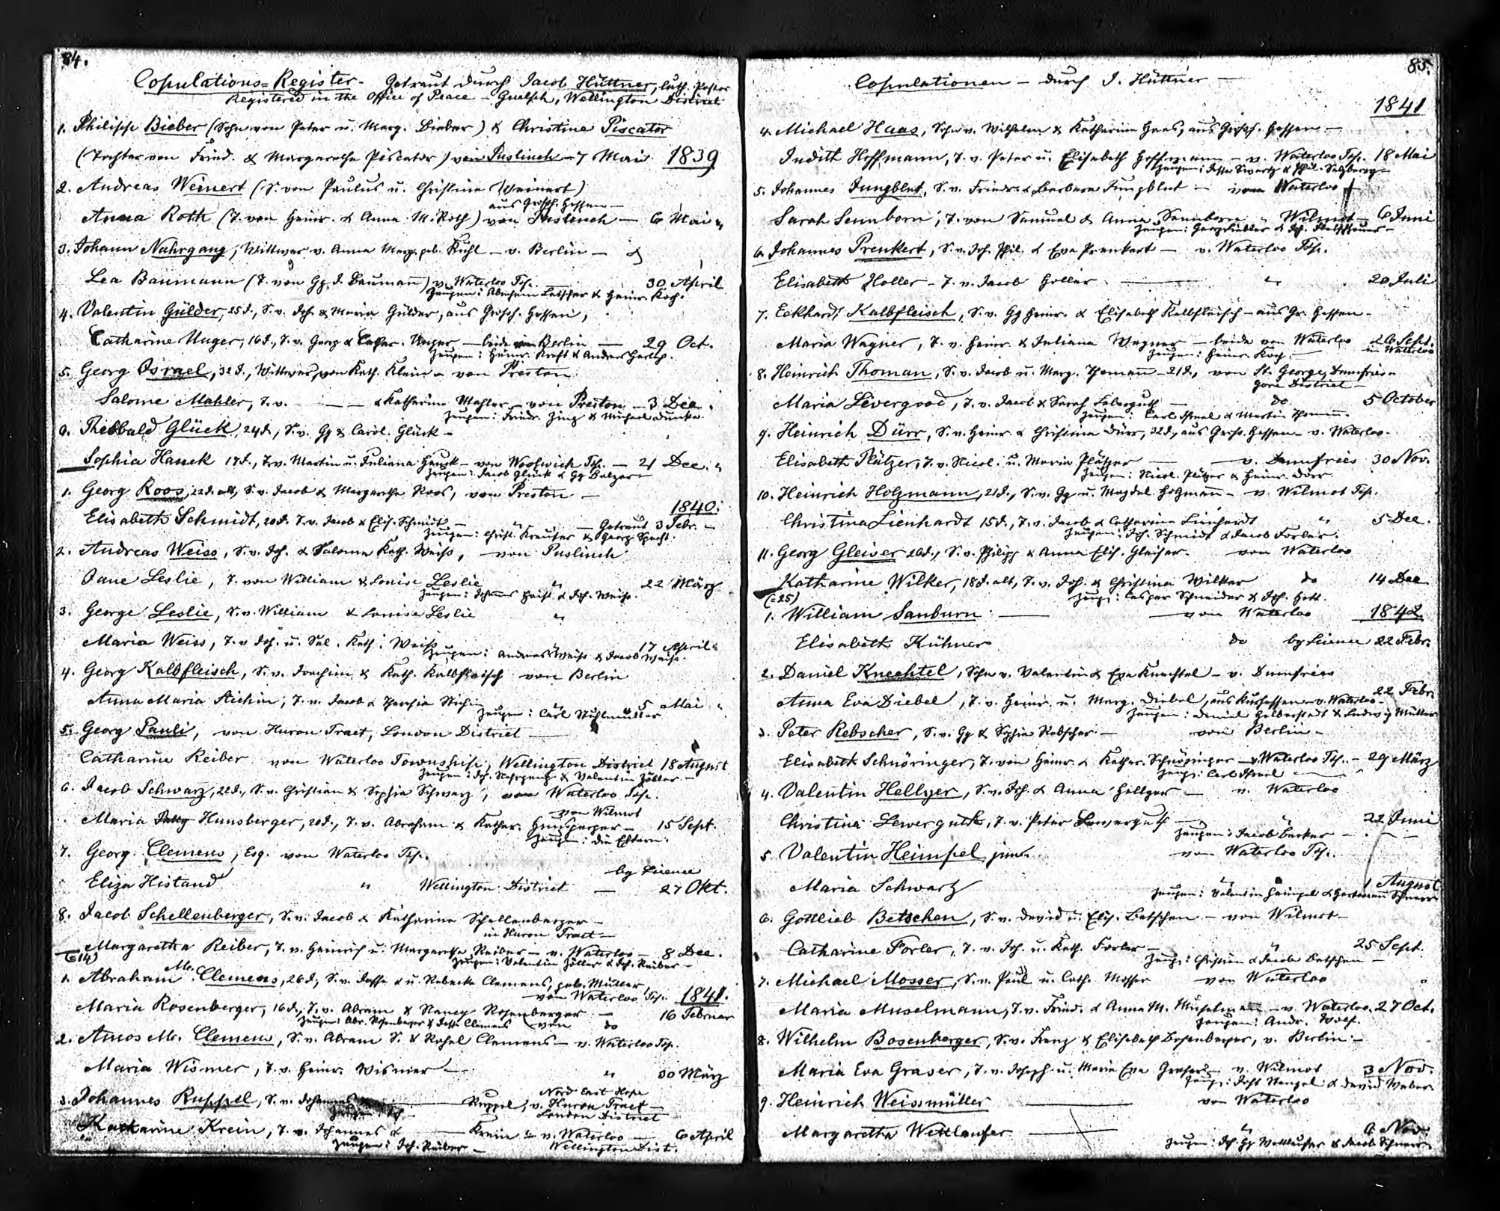 84.
Copulations=Register. Getraut durch Jacob Hüttner, luth. Pastor
Registered in the Office of Peace - Guelph, Wellington District
1. Philipp Bieber (Sohn von Peter u. Marg. Bieber) & Christine Piscator
(Tochter von Fried. & Margaretha Piscator) von Puslinch - 7 Mai 1839
2. Andreas Weinert (S. von Paulus u. Christine Weinert)
aus Grhzh. Hessen -
Anna Roth (T. von Heinr. & Anna M. Roth) von Puslinch - 6 Mai "
3. Johann Nahrgang, Wittwer v. Anna Marg. geb. Kuhl - v. Berlin - &
Lea Baumann (T. von Gg. J. Baumann) v. Waterloo Tsp. 30 April
Zeugen: Abraham & Heinr. Koch.
4. Valentin Gülder, 25 J., S. v. Joh. & Maria Gülder, aus Grhzh. Hessen,
Catharine Unger, 16 J., T. v. Georg & Cathar. Unger - beide von Berlin - 29 Oct.
Zeugen: Heinr. Kraft & Andres
5. Georg Israel, 32 J., Wittwer von Kath. Klein - von Preston.
Salome Mahler, T. v. - & Katharine Mahler - von Preston - 3 Dec.
Zeugen: Friedr. & Michael
6. Theobald Glück, 24 J., S. v. Gg & Carol. Glück -
Sophia Hauck 17 J., T. v. Martin u. Juliana Hauck - von Woolwich Tsp. - 21 Dec. "
Zeugen: Jacob Glück & Gg Balzer -
1. Georg Roos, 22 J. alt, S. v. Jacob & Margaretha Roos, von Preston - 1840.
Elisabeth Schmidt, 20 J. T. v. Jacob & Elis. Schmidt - " - Getraut 3 Febr. -
Zeugen: Christ. Krauter & Georg Specht.
2. Andreas Weiss, S. v. Joh. & Saloma Kath. Weiss, - von Puslinch
Jane Leslie, T. von William & Louise Leslie " 22 März
Zeugen: Johannes & Joh. Weiss.
3. George Leslie, S. v. William & Louisa Leslie "
Maria Weiss, T. v. Joh. u. Sal. Kath. Weiss " 17 April "
Zeugen: Andreas Weiss & Jacob Weiss.
4. Georg Kalbfleisch, S. v. Joachim & Kath. Kalbfleisch von Berlin
Anna Maria Richin, T. v. Jacob & 5 Mai "
Zeugen: Carl Mühlmüller
5. Georg Pauli, von Huron Tract, London District -
Catharine Reiber von Waterloo Township, Wellington District 18 August
Zeugen: Joh. Nahrgang & Valentin Zöller -
6. Jacob Schwarz, 22 J., S. v. Christian & Sophia Schwarz, von Waterloo Tsp.
von Wilmot
Maria Hunsberger, 20 J., T. v. Abraham & Kathar. Hunsperger - 15 Sept.
Zeugen: Die Eltern.
7. Georg Clemens, Esq. von Waterloo Tsp. by Licence
Eliza Histand " Wellington District - 27 Okt.
8. Jacob Schellenberger, S. v. Jacob & Katharine Schellenberger -
in Huron Tract -
Margaretha Reiber, T. v. Heinrich u. Margaretha Reiber - v. Waterloo - 8 Dec.
(=14) Zeugen: Valentin Zöller & Joh. Reiber -
1. Abraham Me. Clemens, 26 J., S. v. & Rebecka Clemens, geb. Müller
von Waterloo Tsp. 1841.
Maria Rosenberger, 16 J., T. v. Abram & Nancy Rosenberger - 16 Februar
Zeugen: Abr. Rosenberger & Clemens von do
2. Amos Me. Clemens, S. v. Abram S. & Rahel Clemens - v. Waterloo Tsp.
Maria Wismer, T. v. Heinr. Wismer - " 30 März
3. Johannes Ruppel, S. v. Johannes - Ruppel, v. Huron Tract -
Nord East Hope
London District
Katharine Krein, T. v. Johannes & - Krein - v. Waterloo - 6 April
Zeugen: Joh. Reiber - Wellington Dist.
85.
Copulationen - durch J. Hüttner -
1841
4. Michael Haas, Sohn v. Wilhelm & Katharine Haas, aus Grhzh. Hessen -
Judith Hoffmann, T. v. Peter u. Elisabeth Hoffmann - v. Waterloo Tsp. 18 Mai
Zeugen: Swartz & Phil. Salzberger
5. Johannes Jungblut, S. v. Friedr. & Barbara Jungblut - von Waterloo
Sarah Sennborn, T. von Samuel & Anna Sennborn " Wilmot - 6 Juni
Zeugen: Georg & Joh.
6. Johannes Prenkert, S. v. Joh. Phil. & Eva Prenkert - v. Waterloo Tsp.
Elisabeth Holler - T. v. Jacob Holler - " 20 Juli
7. Eckhardt Kalbfleisch, S. v. Gg Heinr. & Elisabeth Kalbfleisch - aus Gr. Hessen -
Maria Wagner, T. v. Heinr. & Juliana Wagner - beide von Waterloo 26 Sept.
Zeugen: Heinr. Koch - in Waterloo
8. Heinrich Thoman, S. v. Jacob u. Marg. Thomann - 21 J., von St. George, Dumfries -
Gore District -
Maria Livergood, T. v. Jacob & Sarah Lebergutt - do 5 October
Zeugen: Carl Israel & Martin Thomann.
9. Heinrich Dürr, S. v. Heinr. & Christina Dürr, 22 J., aus Grhz. Hessen v. Waterloo.
Elisabeth Plätzer, T. v. Nicol. u. Maria Plätzer - v. Dumfries 30 Nov.
Zeugen: Nicol. Plätzer & Heinr. Dürr
10. Heinrich Holzmann, 21 J., S. v. Gg u. Magdal. Holzmann - v. Wilmot Tsp.
Christina Lienhardt 15 J., T. v. Jacob & Catharina Lienhardt " 5 Dec.
Zeugen: Joh. Schmidt & Jacob Forler.
11. Georg Gleiser 20 J., S. v. Philipp & Anna Elis. Gleiser. von Waterloo
Katharine Wilker, 18 J. alt, T. v. Joh. & Christina Wilker do 14 Dec.
(=25) Zeug: Caspar Schneider & Joh.
1. William Sanburn - von Waterloo 1842
Elisabeth Kühner do by Licence 22 Febr.
2. Daniel Knechtel, Sohn v. Valentin & Eva Knechtel - v. Dumfries
Anna Eva Diebel, T. v. Heinr. u. Marg. Diebel, aus Kurhessen - v. Waterloo - 22 Febr.
Zeugen: Daniel & Ludwig Müller
3. Peter Rebscher, S. v. Gg & Sophia Rebscher - von Berlin -
Elisabeth Schnöringer, T. von Heinr. & Kathar. Schnöringer v. Waterloo Tsp. - 29 März
Zeug: Carl Israel -
4. Valentin Hellyer, S. v. Joh. & Anna Hellyer - v. Waterloo
Christina Lewergutt, T. v. Peter Lewergutt - " 22 Juni
Zeugen: Jacob Becker -
5. Valentin Heimpel jun. von Waterloo Tsp.
Maria Schwartz " 1 August
Zeugen: Valentin Heimpel & Hartmann Schnarr
6. Gottlieb Betschen, S. v. David u. Elis. Betschen - von Wilmot -
Catharine Forler, T. v. Joh. u. Kath. Forler - " 25 Sept.
Zeug: Christian & Jacob Betschen -
7. Michael Mosser, S. v. Paul u. Cath. Mosser von Waterloo "
Maria Muselmann, T. v. Fried. & Anna M. Muselmann - v. Waterloo. 27 Oct.
Zeugen: Andr. Wolf.
8. Wilhelm Bosenberger, S. v. Franz & Elisabeth Bosenberger, v. Berlin -
Maria Eva Graser, T. v. Joseph u. Maria Eva Graser - v. Wilmot 3 Nov.
Zeug: & David Weber
9. Heinrich Weissmüller - von Waterloo
Margaretha Wettlaufer - " 6 Nov.
Zeugen: Joh. Gg Wettlaufer & Jacob Schnarr